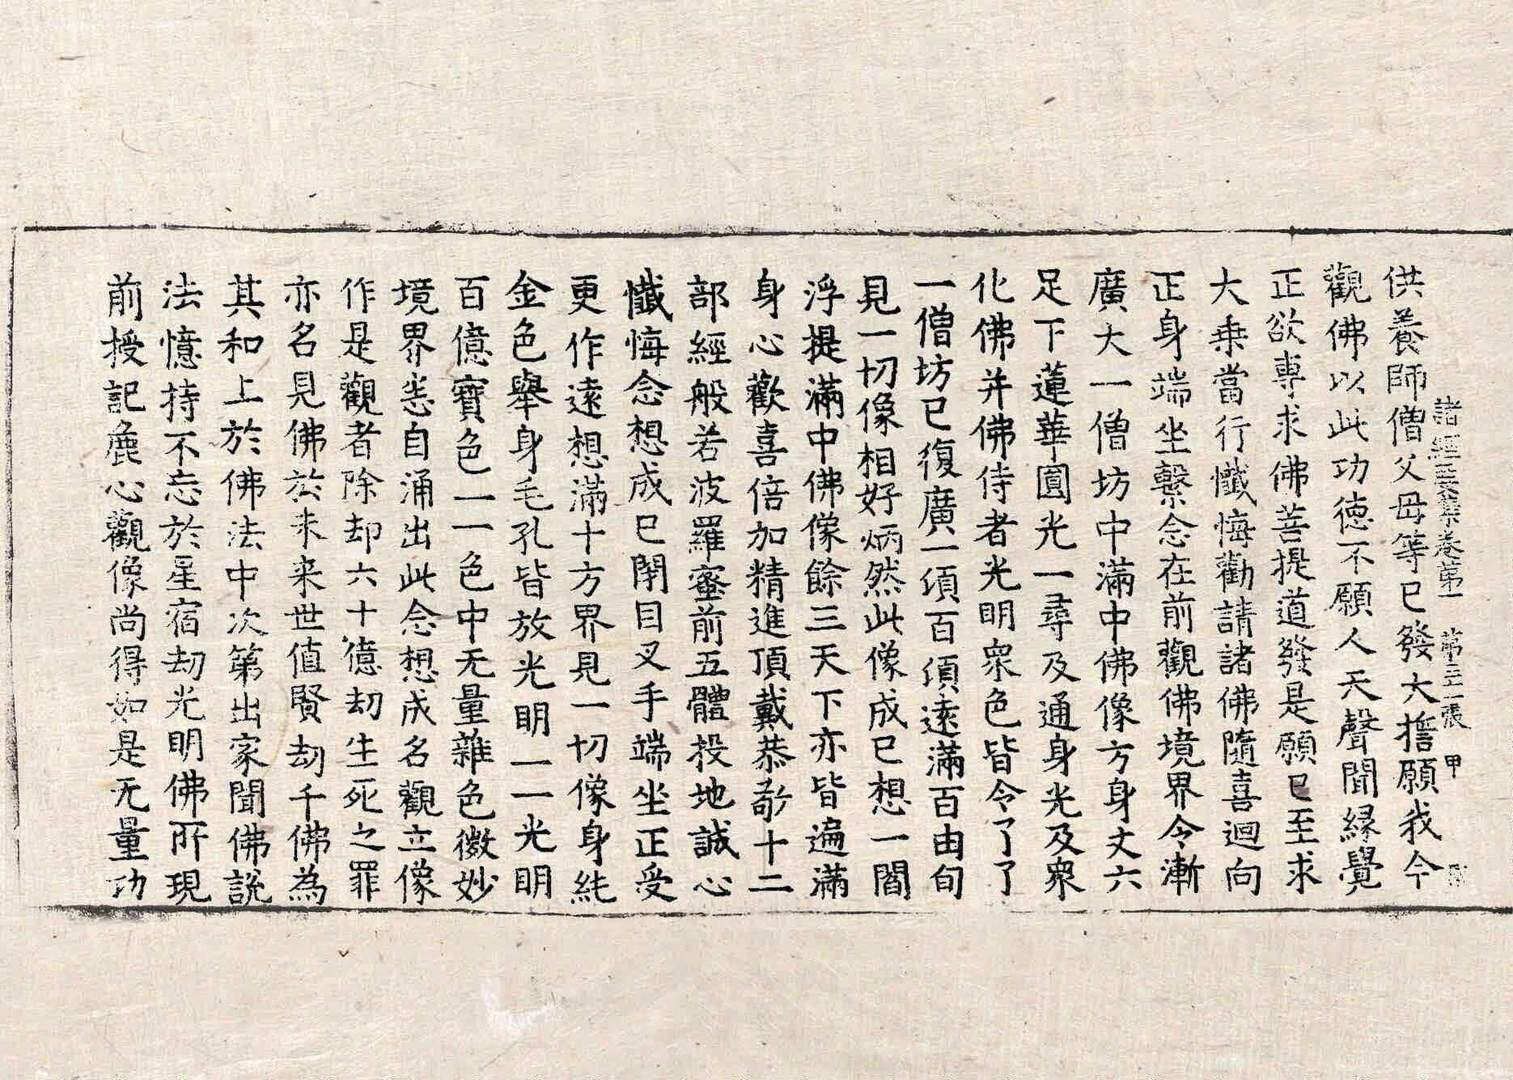 諸經要集卷第一　第三一張　甲
供養師僧父母等已發大擔願我今
觀佛以此功德不願人天聲聞緣覺
正欲專求佛菩提道發是願已至求
大乘當行懺悔勸請諸佛隨喜迴向
正身端坐繫念在前觀佛境界令漸
廣大一僧坊中滿中佛像方身丈六
足下蓮華圓光一尋及通身光及衆
化佛并佛侍者光明衆色皆令了了
一僧坊已復廣一頃百頃遠滿百由旬
見一切像相好炳然此像成已想一閻
浮提滿中佛像餘三天下亦皆遍滿
身心歡喜倍加精進頂戴恭敬十二
部經般若波羅蜜前五體投地誠心
懺悔念想成已閉目叉手端坐正受
更作遠想滿十方界見一切像身純
金色舉身毛孔皆放光明一一光明
百億寶色一一色中无量雜色微妙
境界悉自涌出此念想成名觀立像
作是觀者除却六十億劫生死之罪
亦名見佛於未來世值賢劫千佛為
其和上於佛法中次第出家聞佛說
法憶持不忘於星宿劫光明佛所現
前授記麁心觀像尚得如是无量功